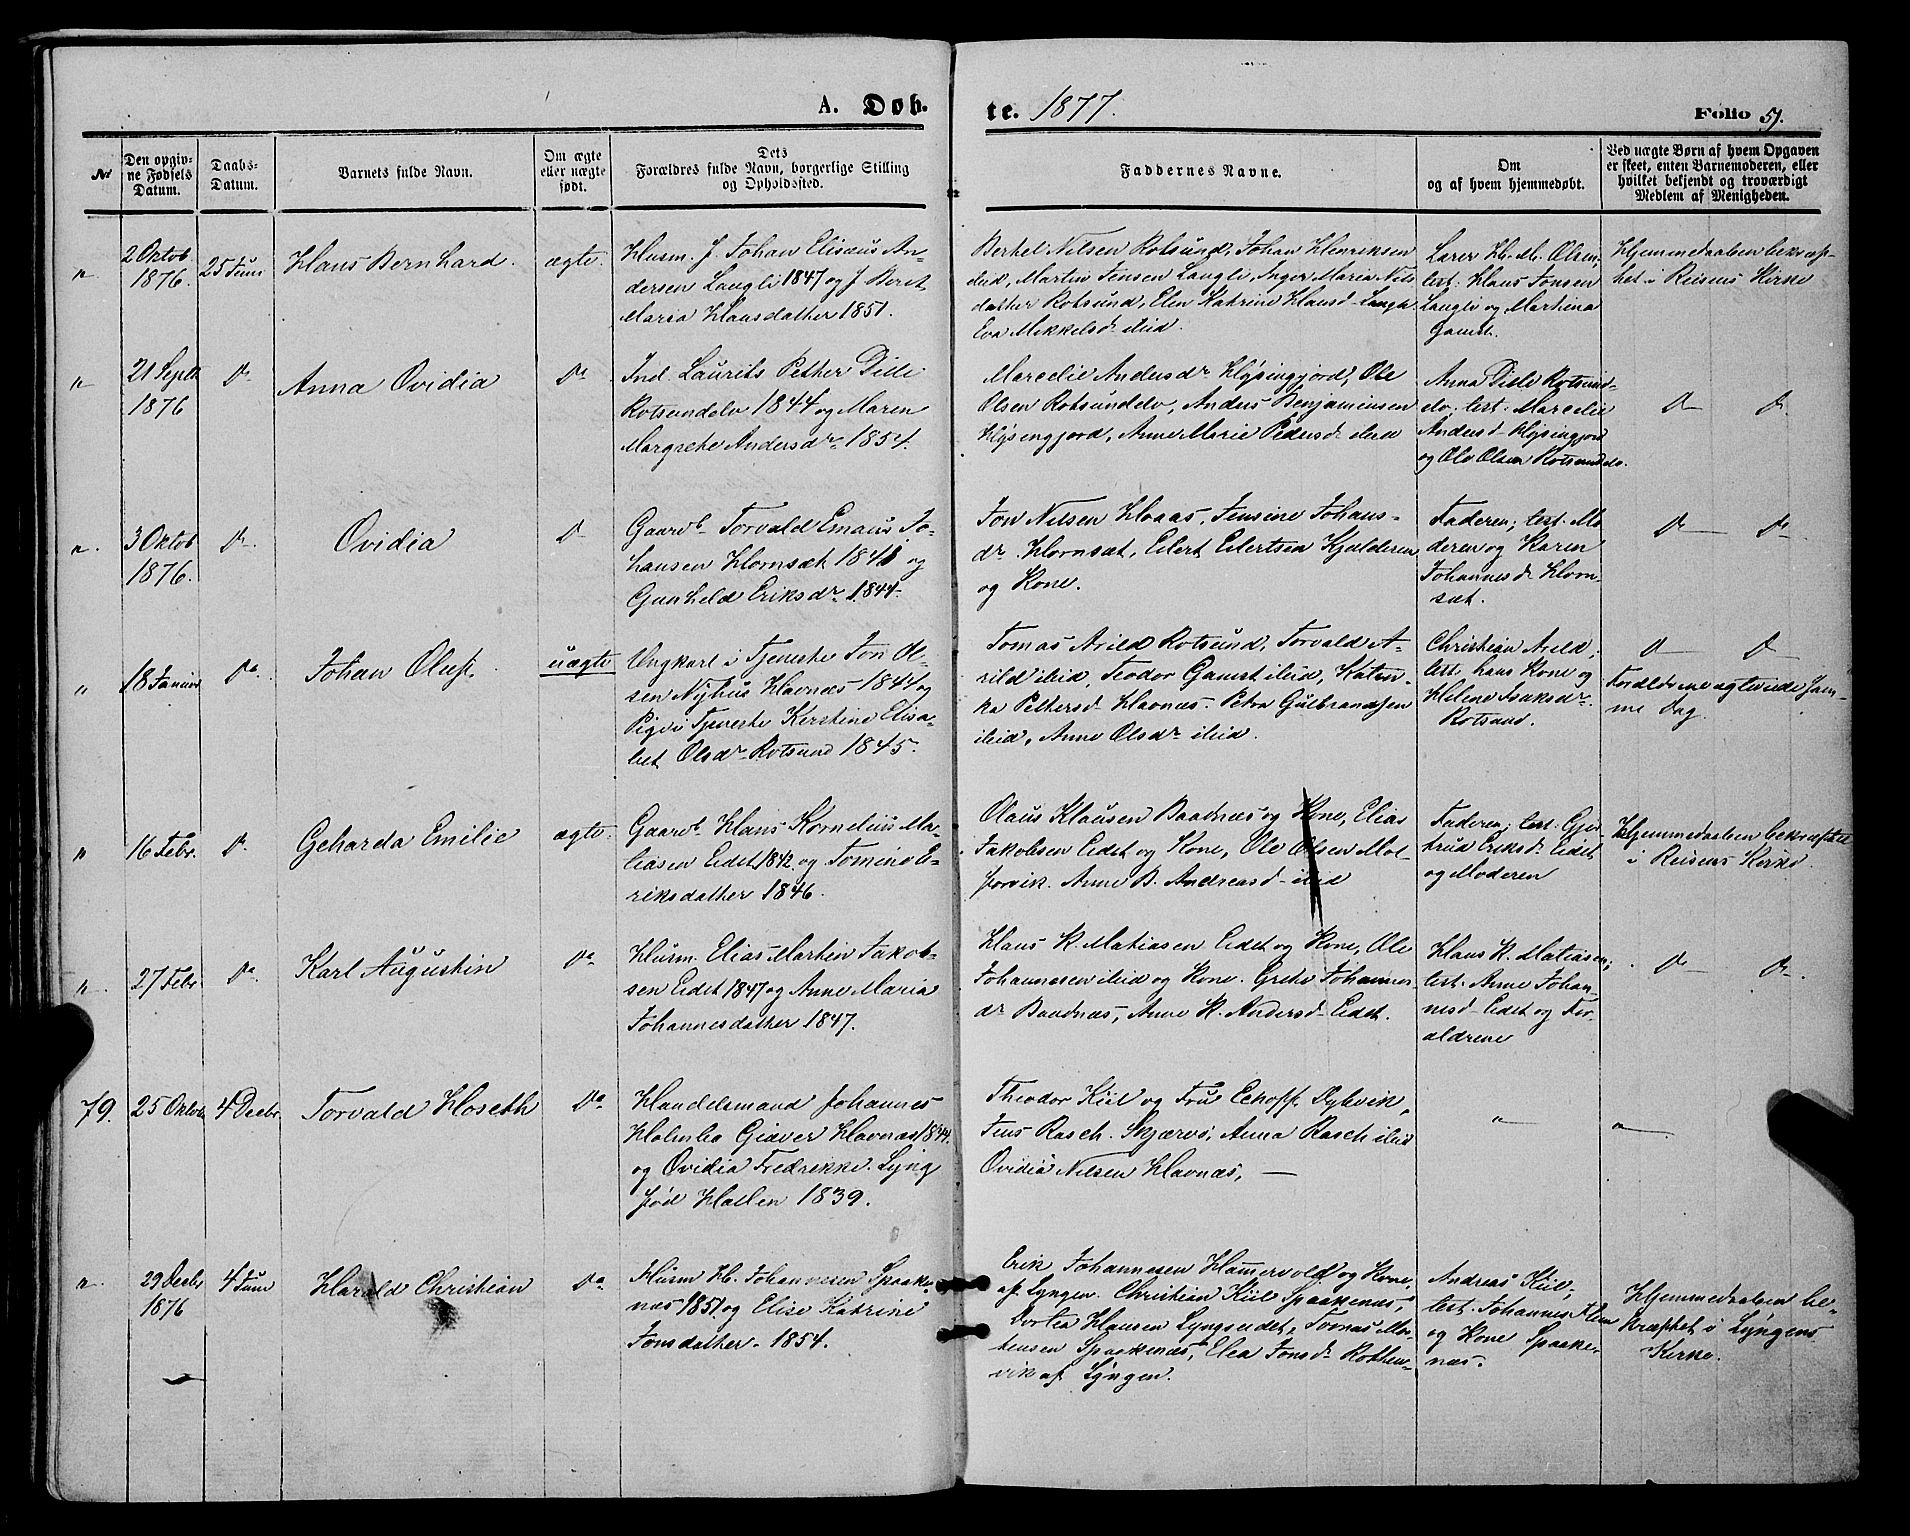 A. Døb-
te. 1877.
Folio 51.
No
Den opgiv-
ne Fødsels
Datum.
Daabs-
Datum.
Barnets fulde Navn.
Om ægte
eller uægte
født.
Dets
Forældres fulde Navn, borgerlige Stilling
og Opholdssted.
Faddernes Navne.
Om
og af hvem hjemmedøbt.
Ved uægte Børn af hvem Opgaven
er skeet, enten Barnemoderen, eller
hvilket bekjendt og troværdigt
Medlem af Menigheden.
"
2 Oktob.
1876.
25 Juni
Hans Bernhard.
ægte.
Husm. J. Johan Elisæus An-
dersen Langli 1847 og J. Beret
Maria Hansdatter 1851.
Berhel Nilsen Rotsund, Johan Henriksen
ibid, Martin Jensen Langli, Inger Maria Nils
datter Rotsund, Elen Katrine Hansd- Langli
Eva Mikkelsd ibid.
Lærer H. M. Olsen,
test. Hans Jonsen
Langli og Martina
Gamst.
Hjemmedaaben bekræf-
tet i Reisens Kirke
"
21 Septb
1876
Do
Anna Ovidia
Do
Ind. Laurits Petter Dille
Rotsundelv 1844 og Maren
Margrete Andersdr 1854.
Marcelie Andersdr Hysingjord, Ole
Olsen Rotsundelv, Anders Benjaminsen
Hysingjord, Anne Marie Pedersd ibid
Anna Dille Rotsund-
elv, test. Marcelie
Andersd Hysingjord
og Ole Olsen Rotsundelv.
Do Do
"
3 Oktob
1876.
Do
Ovidia
Do
Gaardb. Torvald Emaus Jo-
hansen Hornsæt 1841 og
Gunhild Eriksdr 1844.
Jon Nilsen Haas, Jensine Johans-
dr Hornsæt, Eilert Eilertsen Kjelderen
og Kone.
Faderen; test. Mo
deren og Karen
Johannesd Horn-
sæt.
Do Do
"
18 Januar
Do
Johan Oluf.
uægte
Ungkarl i Tjeneste Jon Ol-
sen Nyhus Havnæs 1844 og
Pige i Tjeneste Kerstine Elisa-
bet Olsdr Rotsund 1845.
Tomas Arild Rotsund, Torvald A-
rild ibid, Teodor Gamst ibid, Katin-
ka Pettersd Havnæs. Petra Gulbrandsen
ibid, Anne Olsdr ibid.
Christian Arild,
test. hans Kone og
Helene Isaksdr
Rotsund.
Do Do
Forældrene ægteviede sam-
me Dag.
"
16 Febr.
Do
Geharda Emilie
ægte.
Gaardb. Hans Kornelius Ma-
tiasen Eidet 1842 og Tomine E-
riksdatter 1846.
Olaus Klausen Baadnæs og Kone, Elias
Jakobsen Eidet og Kone, Ole Olsen Mol-
forvik. Anne B. Andreasd ibid
Faderen; test. Gjer-
trud Eriksd Eidet
og Moderen
Hjemmedaaben bekræftet
i Reisens Kirke.
"
27 Febr
Do
Karl Augustin
Do
Husm. Elias Martin Jakob-
sen Eidet 1847 og Anne Maria
Johannesdatter 1847.
Hans K. Matiasen Eidet og Kone, Ole
Johannesen ibid og Kone. Grete Johannes-
dr Baadnæs, Anne K. Andersd Eidet.
Hans K. Matiasen;
test. Anne Johan-
nesd Eidet og For-
ældrene
Do Do
79.
25 Oktob
4 Decbr.
Torvald Hoseth
Do
Handelsmand Johannes
Holmbo Giæver Havnæs 1844.
og Ovidia Fredrikke Lyng
fød Hatlen 1839.
Theodor Kiil og Fru Eckhoff. Dybvik,
Jens Rasch. Skjærvø, Anna Rasch ibid
Ovidia Nilsen Havnæs, —
"
"
"
29 Decbr
1876
4 Juni
Harald Christian
Do
Husm H. Johannesen Spaake-
næs 1851 og Elise Katrine
Jonsdatter. 1854.
Erik Johannesen Hamervold og Kone,
af Lyngen. Christian Kiil Spaakenæs,
Dortea Hansen Lyngseidet, Tomas Mor-
tensen Spaakenæs, Elea Jonsdr Rotten-
vik af Lyngen.
Andreas Kiil,
test. Johannes
og Kone Spaake-
næs.
Hjemmedaaben be-
kræftet i Lyngens
Kirke.